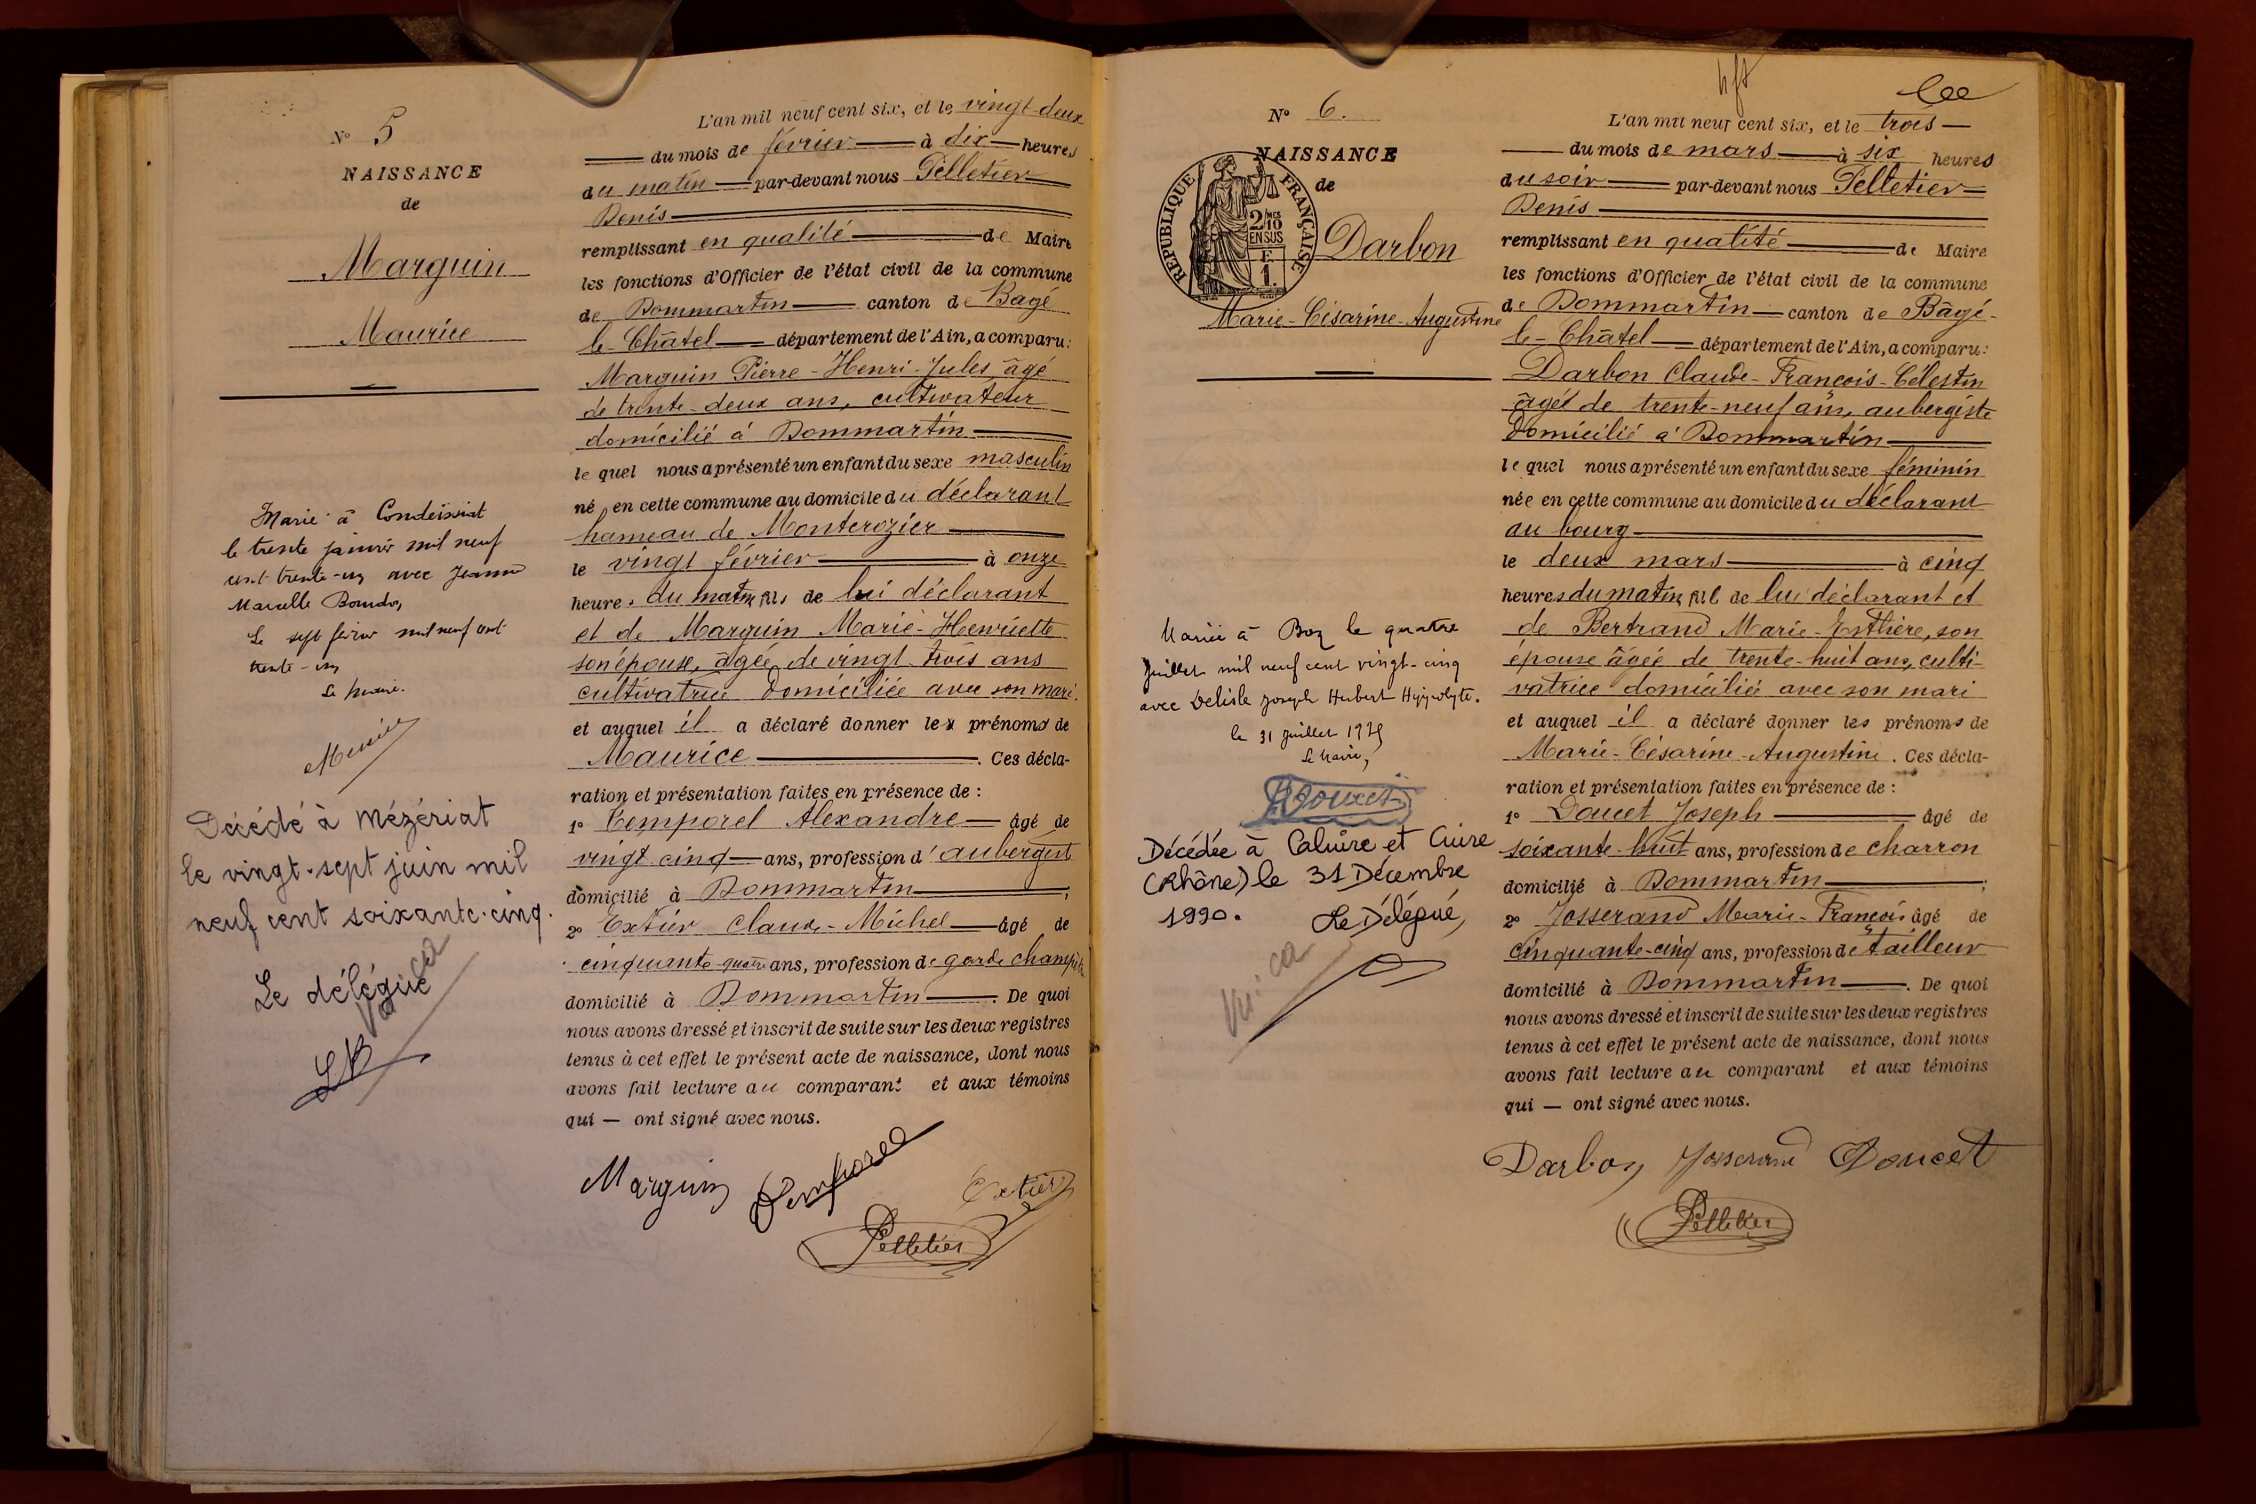 N° 5
NAISSANCE
de
Marguin
Maurice
Marié à Condeissiat
le trente janvier mil neuf
cent trente-un avec Jeanne
Marcelle
Le sept février mil neuf cent
trente-un
Le Maire.
Décédé à Mézériat
le vingt-sept juin mil
neuf cent soixante-cinq.
Le délégué
L'an mil neuf cent six, et le vingt-deux
du mois de février à dix heures
du matin par-devant nous Pelletier
Denis
remplissant en qualité de Maire
les fonctions d'Officier de l'état civil de la commune
de Dommartin canton de Bagé
le Châtel département de l'Ain, a comparu:
Marguin Pierre-Henri-Jules, âgé
de trente-deux ans, cultivateur
domicilié à Dommartin
le quel nous a présenté un enfant du sexe masculin
né en cette commune au domicile du déclarant
hameau de Monterozier
le vingt février à onze
heures du matin fils de lui déclarant
et de Marguin Marie-Henriette
son épouse, âgée de vingt-trois ans
cultivatrice domiciliée avec son mari.
et auquel il a déclaré donner les prénoms de
Maurice. Ces décla-
ration et présentation faites en présence de :
1° Temporel Alexandre âgé de
vingt cinq ans, profession d'aubergist
domicilié à Dommartin;
2° Extier Claude-Michel âgé de
cinquante-quatre ans, profession de garde champêtre
domicilié à Dommartin. De quoi
nous avons dressé et inscrit de suite sur les deux registres
tenus à cet effet le présent acte de naissance, dont nous
avons fait lecture au comparant et aux témoins
qui — ont signé avec nous.
Marguin Temporel Extier
Pelletier
N° 6.
NAISSANCE
de
RÉPUBLIQUE FRANÇAISE
2/10
EN SUS
F.
1.
Darbon
Marie-Césarine-Augustine
Mariée à Boz le quatre
Juillet mil neuf cent vingt-cinq
avec Delisle Joseph Hubert Hyppolyte.
le 31 juillet 1925
Le Maire,
Doucet
Décédée à Caluire et Cuire
(Rhône) le 31 Décembre
1990.
Le Délégué,
L'an mil neuf cent six, et le trois
du mois de mars à six heures
du soir par-devant nous Pelletier
Denis
remplissant en qualité de Maire
les fonctions d'Officier de l'état civil de la commune
de Dommartin canton de Bâgé-
le-Châtel département de l'Ain, a comparu:
Darbon Claude-François-Célestin
âgé de trente-neuf ans, aubergiste
domicilié à Dommartin
le quel nous a présenté un enfant du sexe féminin
née en cette commune au domicile du déclarant
au bourg
le deux mars à cinq
heures du matin fille de lui déclarant et
de Bertrand Marie-, son
épouse âgée de trente-huit ans, culti-
vatrice domiciliée avec son mari
et auquel il a déclaré donner les prénoms de
Marie-Césarine-Augustine. Ces décla-
ration et présentation faites en présence de :
1° Doucet Joseph âgé de
soixante-huit ans, profession de charron
domicilié à Dommartin;
2° Josserand Marie-François âgé de
cinquante-cinq ans, profession de tailleur
domicilié à Dommartin. De quoi
nous avons dressé et inscrit de suite sur les deux registres
tenus à cet effet le présent acte de naissance, dont nous
avons fait lecture au comparant et aux témoins
qui — ont signé avec nous.
Darbon Josserand Doucet
Pelletier